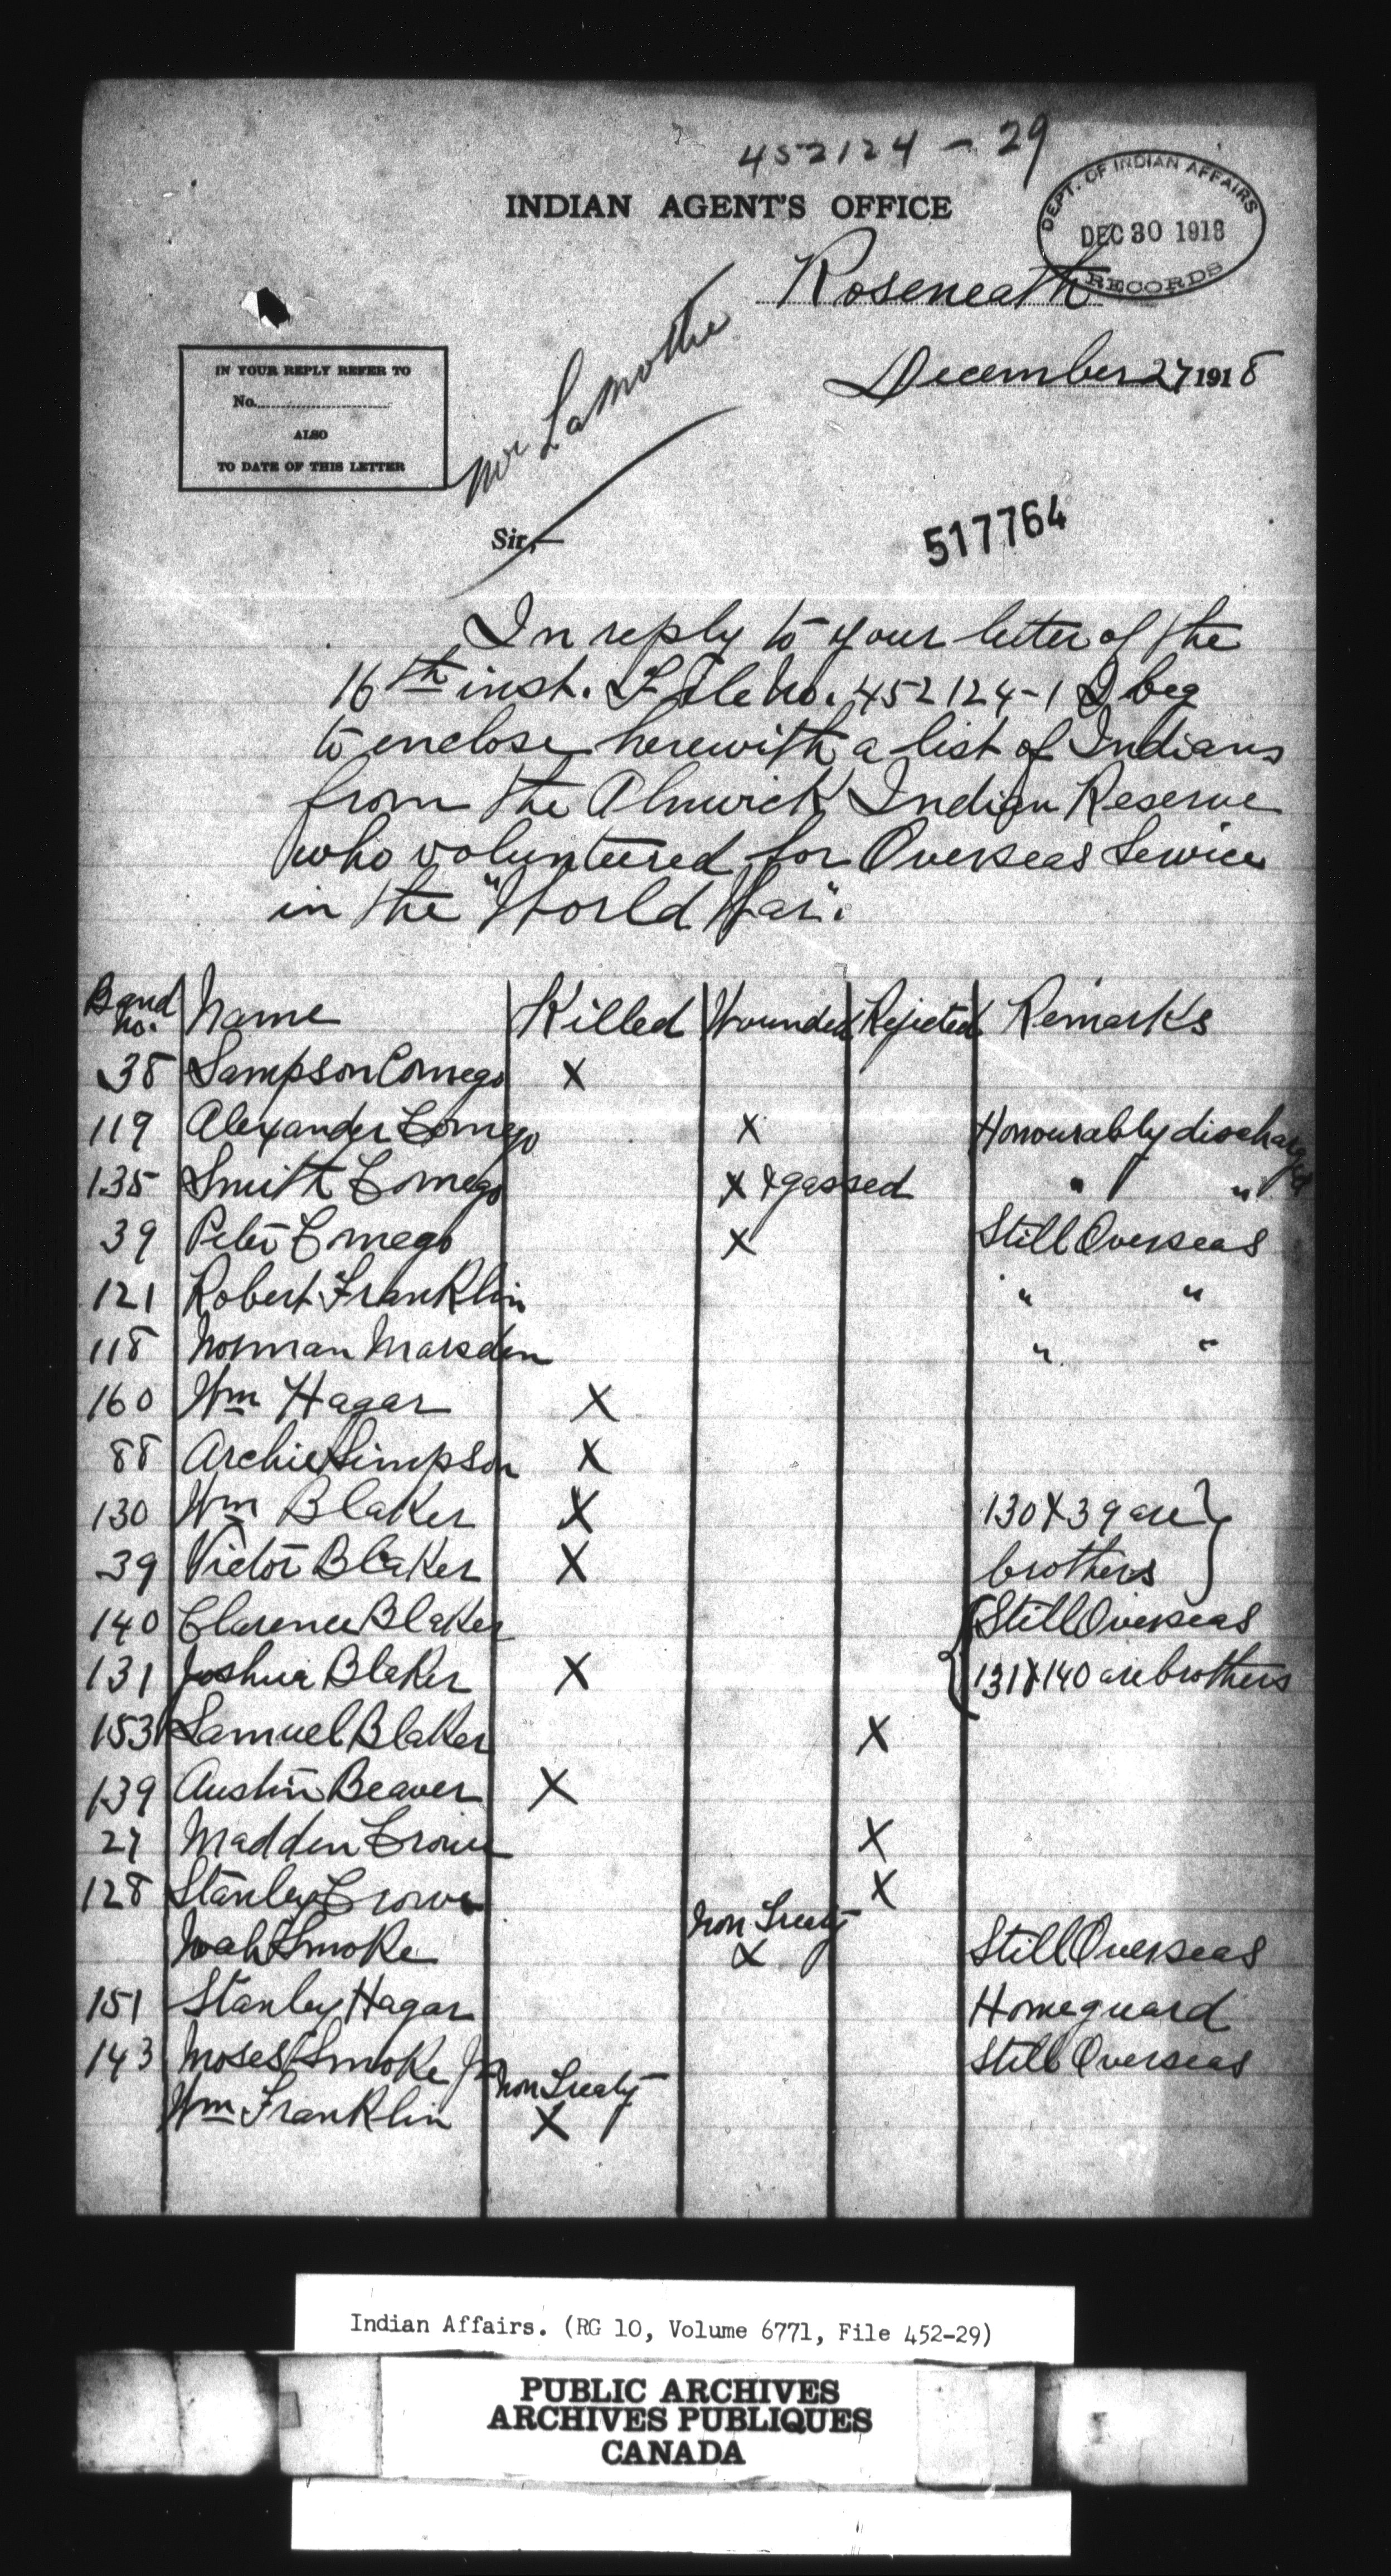 452124 - 29
INDIAN AGENT'S OFFICE
DEPT. OF INDIAN AFFAIRS
DEC 30 1918
RECORDS
Roseneath
December 27 1918
IN YOUR REPLY REFER TO
No.
ALSO
TO DATE OF THIS LETTER
Mr LaMothe
Sir,—
517764
In reply to your letter of the
16th inst. File No. 452124-1 I beg
to enclose herewith a list of Indians
from the Alnwick Indian Reserve
who volunteered for Overseas Service
in the "World War".
Band no. Name Killed Wounded Rejected Remarks
38 Sampson Comego X
119 Alexander Comego X Honourably discharged
135 Smith Comego X & gassed " "
39 Peter Comego X Still Overseas
121 Robert Franklin " "
118 Norman Marsden " "
160 Wm Hagar X
88 Archie Simpson X
130 Wm Blaker X 130 & 39 are }
39 Victor Blaker X brothers
140 Clarence Blaker { Still Overseas
131 Joshua Blaker X 131 & 140 are brothers
153 Samuel Blaker X
139 Austin Beaver X
27 Madden Crowe X
128 Stanley Crowe X
Noah Smoke Non Treaty X Still Overseas
151 Stanley Hagar Homeguard
143 Moses Smoke Jr Still Overseas
Wm Franklin Non Treaty X
Indian Affairs. (RG 10, Volume 6771, File 452-29)
PUBLIC ARCHIVES
ARCHIVES PUBLIQUES
CANADA